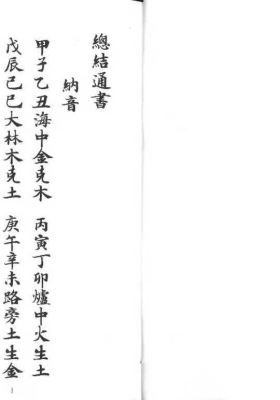 總結通書
納音
甲子乙丑海中金克木 丙寅丁卯爐中火生土
戊辰己巳大林木克土 庚午辛未路旁土生金
1